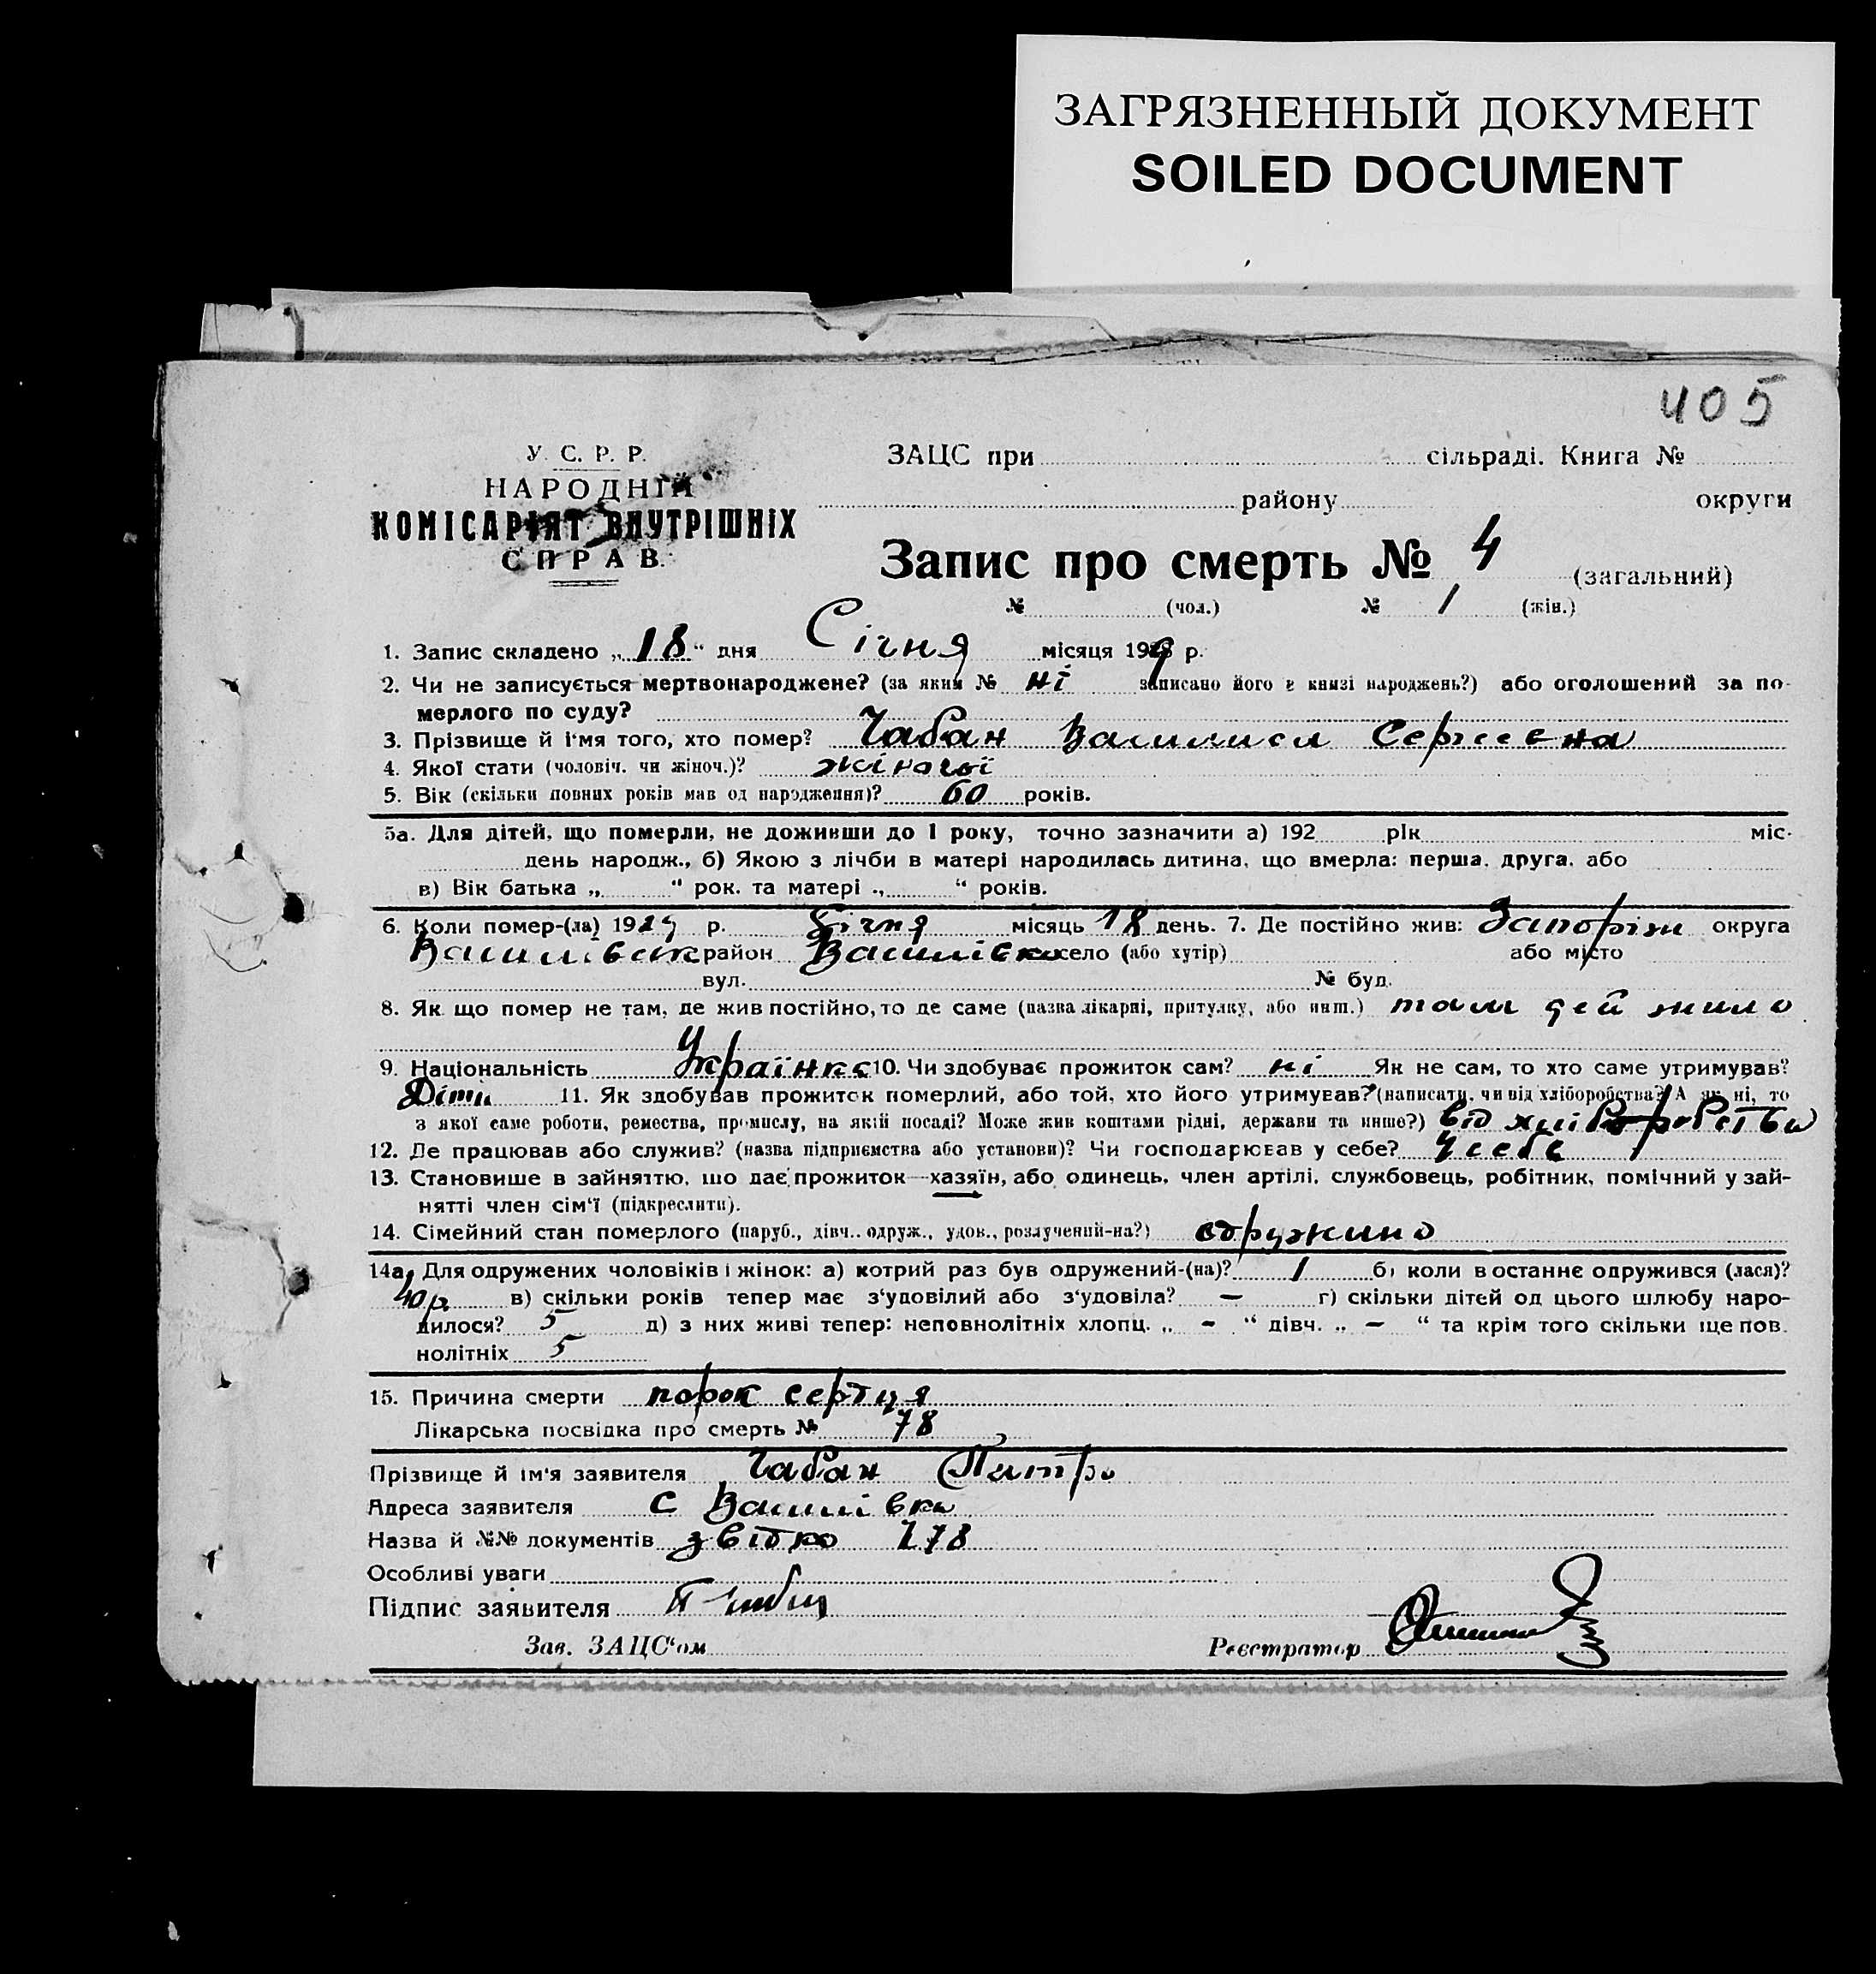 ЗАГРЯЗНЕННЫЙ ДОКУМЕНТ
SOILED DOCUMENT
405
У. С. Р. Р.
НАРОДНІЙ
КОМІСАРІЯТ ВНУТРІШНІХ
СПРАВ.
ЗАЦС при сільраді. Книга №
району округи
Запис про смерть № 4 (загальний)
№ (чол.) № 1 (жін.)
1. Запис складено „18“ дня Січня місяця 1929 р.
2. Чи не записується мертвонароджене? (за яким № ні записано його в книзі народжень?) або оголошений за по-
мерлого по суду?
3. Прізвище й ім'я того, хто помер? Чабан Василиса Сергеевна
4. Якої стати (чоловіч. чи жіноч.)? жіночої
5. Вік (скільки повних років мав од народження)? 60 років.
5а. Для дітей, що померли, не доживши до 1 року, точно зазначити а) 192 рік міс.
день народж., б) Якою з лічби в матері народилась дитина, що вмерла: перша, друга, або
в) Вік батька „ “ рок. та матері „ “ років.
6. Коли помер-(ла) 1929 р. Січня місяць 18 день. 7. Де постійно жив: Запоріж округа
Василівськ район Василівка село (або хутір) або місто
вул. № буд.
8. Як що помер не там, де жив постійно, то де саме (назва лікарні, притулку, або инш.) там дей жила
9. Національність Українка 10. Чи здобуває прожиток сам? ні Як не сам, то хто саме утримував?
Діти 11. Як здобував прожиток померлий, або той, хто його утримував? (написати, чи від хліборобства? А як ні, то
з якої саме роботи, ремества, промислу, на якій посаді? Може жив коштами рідні, держави та инше?) від хліборобства
12. Де працював або служив? (назва підприємства або установи)? Чи господарював у себе? У себе
13. Становище в зайняттю, що дає прожиток—хазяїн, або одинець, член артілі, службовець, робітник, помічний у зай-
нятті член сім'ї (підкреслити).
14. Сімейний стан померлого (паруб., дівч.. одруж., удов., розлучений-на?) одружина
14а. Для одружених чоловіків і жінок: а) котрий раз був одружений-(на)? 1 б) коли востаннє одружився (лася)?
40 р в) скільки років тепер має з'удовілий або з'удовіла? — г) скільки дітей од цього шлюбу наро-
дилося? 5 д) з них живі тепер: неповнолітніх хлопц. „ – “ дівч. „ – “ та крім того скільки ще пов.
нолітніх 5
15. Причина смерти порок сердця
Лікарська посвідка про смерть № 78
Прізвище й ім'я заявителя Чабан Петро
Адреса заявителя с Василівка
Назва й №№ документів звідка 278
Особливі уваги
Підпис заявителя П Чабан
Зав. ЗАЦС'ом Реєстратор